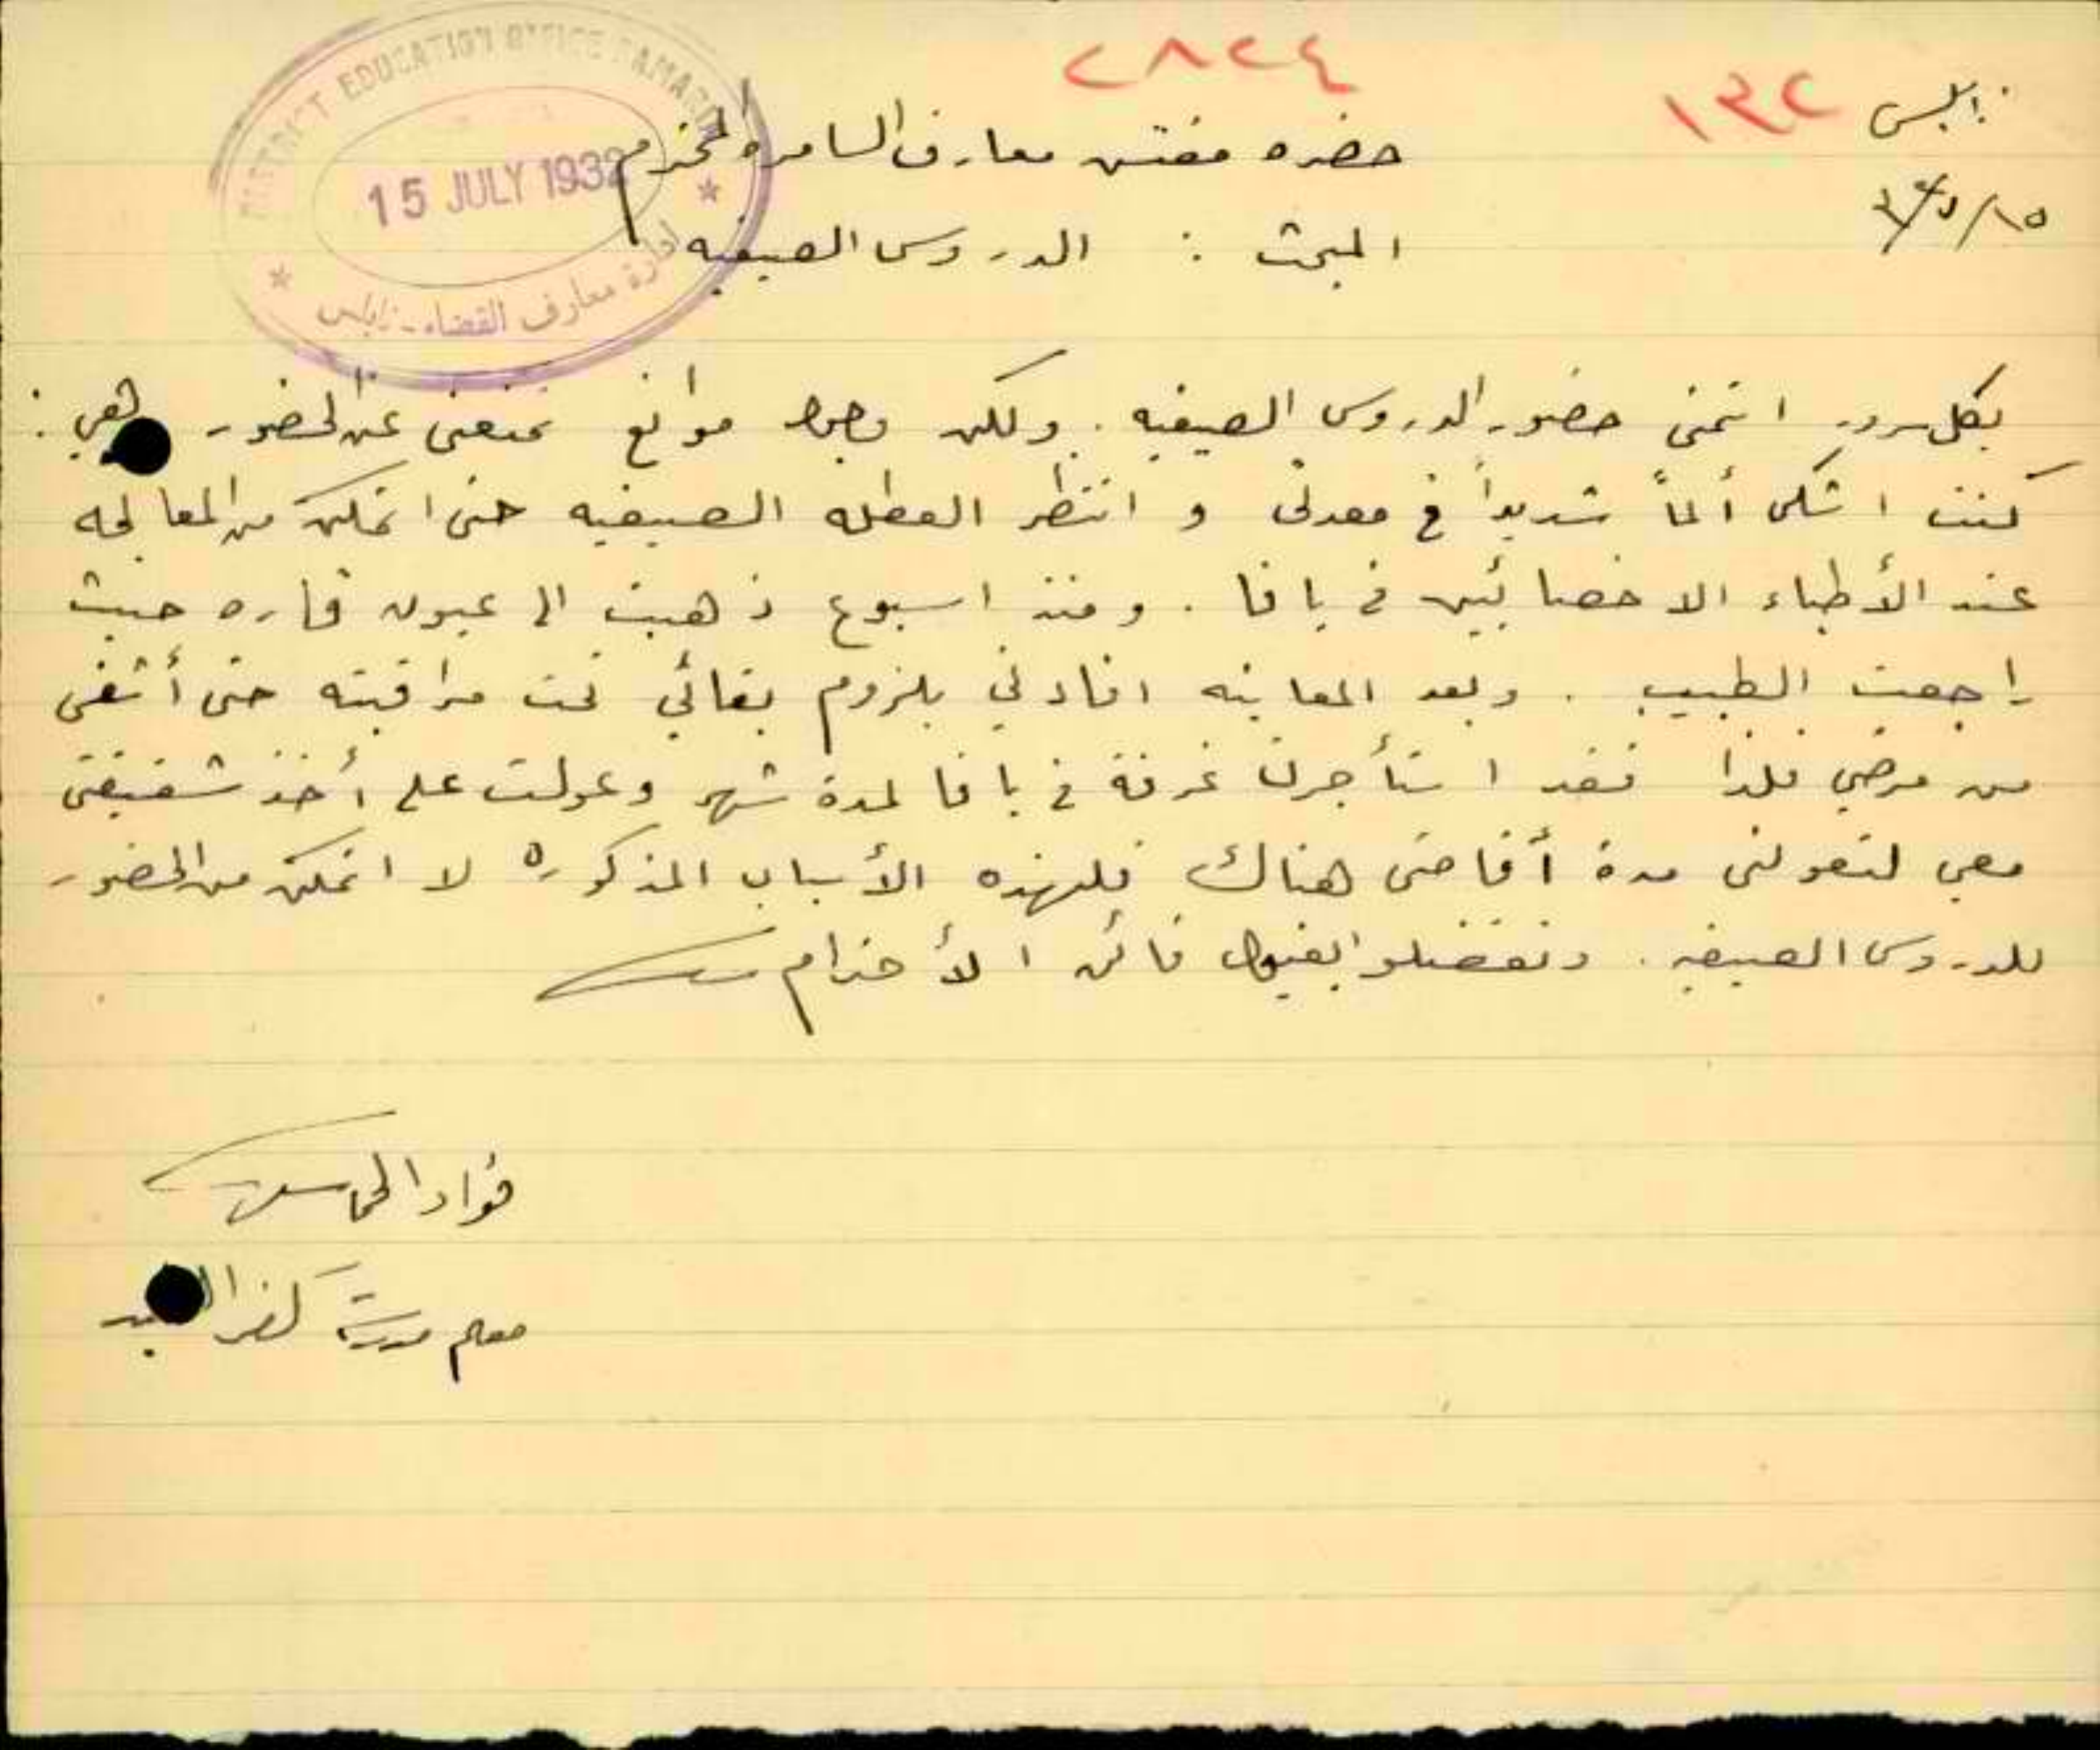 ٢٨٢٤
نابلس ١٣٢
١٥/٧/٣٢
DISTRICT EDUCATION OFFICE SAMARIA
15 JULY 1932
ادارة معارف القضاء - نابلس
حضره مفتش معارف السامره المحترم
المبحث : الدروس الصيفيه
بكل سرور اتمنى حضور الدروس الصيفيه . ولكن وجود موانع تمنعني عن الحضور وهي :
كنت اشكى ألماً شديداً في معدتي و انتظر العطله الصيفيه حتى اتمكن من المعالجه
عند الأطباء الاخصائيين في يافا . ومنذ اسبوع ذهبت الى عيون قاره حيث
راجعت الطبيب . وبعد المعاينه افادني بلزوم بقائي تحت مراقبته حتى أشفى
من مرضي فلذا فقد استأجرت غرفة في يافا لمدة شهر وعولت على أخذ شقيقتي
معي لتعولني مدة أقامتي هناك فلهذه الأسباب المذكوره لا اتمكن من الحضور
للدروس الصيفيه . وتفضلوا بقبول فائق الأحترام
فؤاد
معلم مدرسة كفر